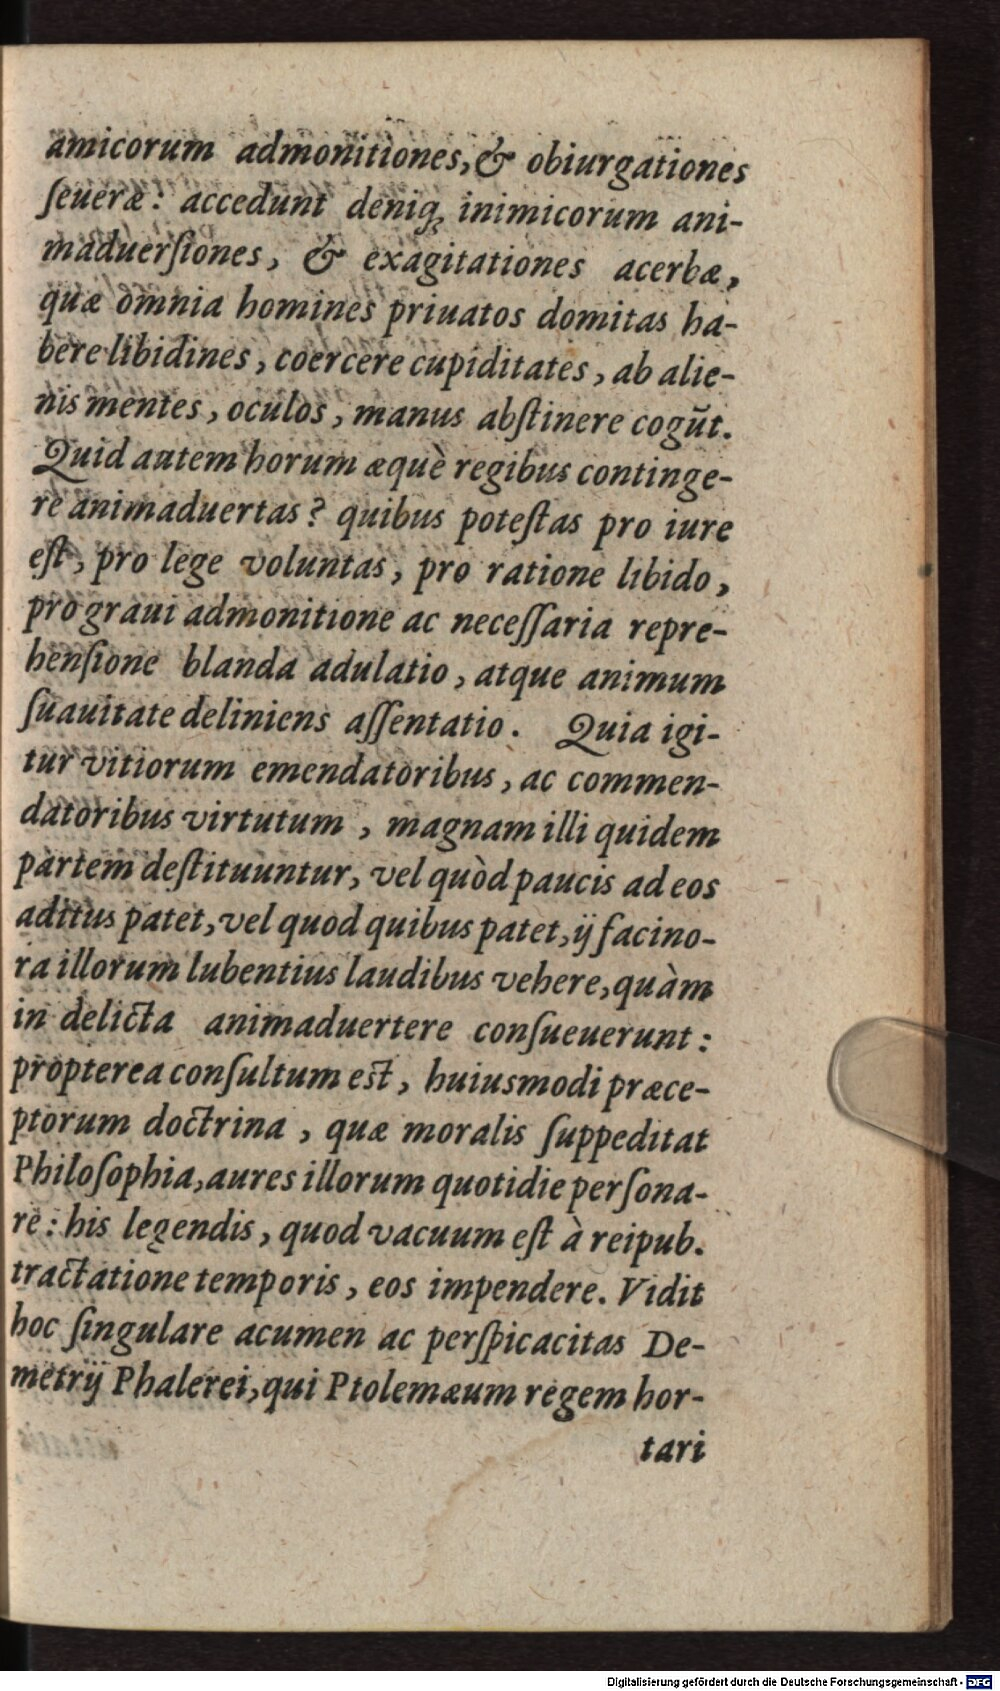 amicorum admonitiones, & obiurgationes
ſeueræ: accedunt deniq; inimicorum ani-
maduerſiones, & exagitationes acerbæ,
quæ omnia homines priuatos domitas ha-
bere libidines, coercere cupiditates, ab alie-
nis mentes, oculos, manus abſtinere cogūt.
Quid autem horum æquè regibus continge-
re animaduertas? quibus poteſtas pro iure
eſt, pro lege voluntas, pro ratione libido,
pro graui admonitione ac neceſſaria repre-
henſione blanda adulatio, atque animum
ſuauitate deliniens aſſentatio. Quia igi-
tur vitiorum emendatoribus, ac commen-
datoribus virtutum, magnam illi quidem
partem deſtituuntur, vel quòd paucis ad eos
aditus patet, vel quod quibus patet, ij facino-
ra illorum lubentius laudibus vehere, quàm
in delicta animaduertere conſueuerunt:
propterea conſultum est, huiusmodi præce-
ptorum doctrina, quæ moralis ſuppeditat
Philoſophia, aures illorum quotidie perſona-
re: his legendis, quod vacuum eſt à reipub.
tractatione temporis, eos impendere. Vidit
hoc ſingulare acumen ac perſpicacitas De-
metrij Phalerei, qui Ptolemæum regem hor-
tari
Digitalisierung gefördert durch die Deutsche Forschungsgemeinschaft - DFG